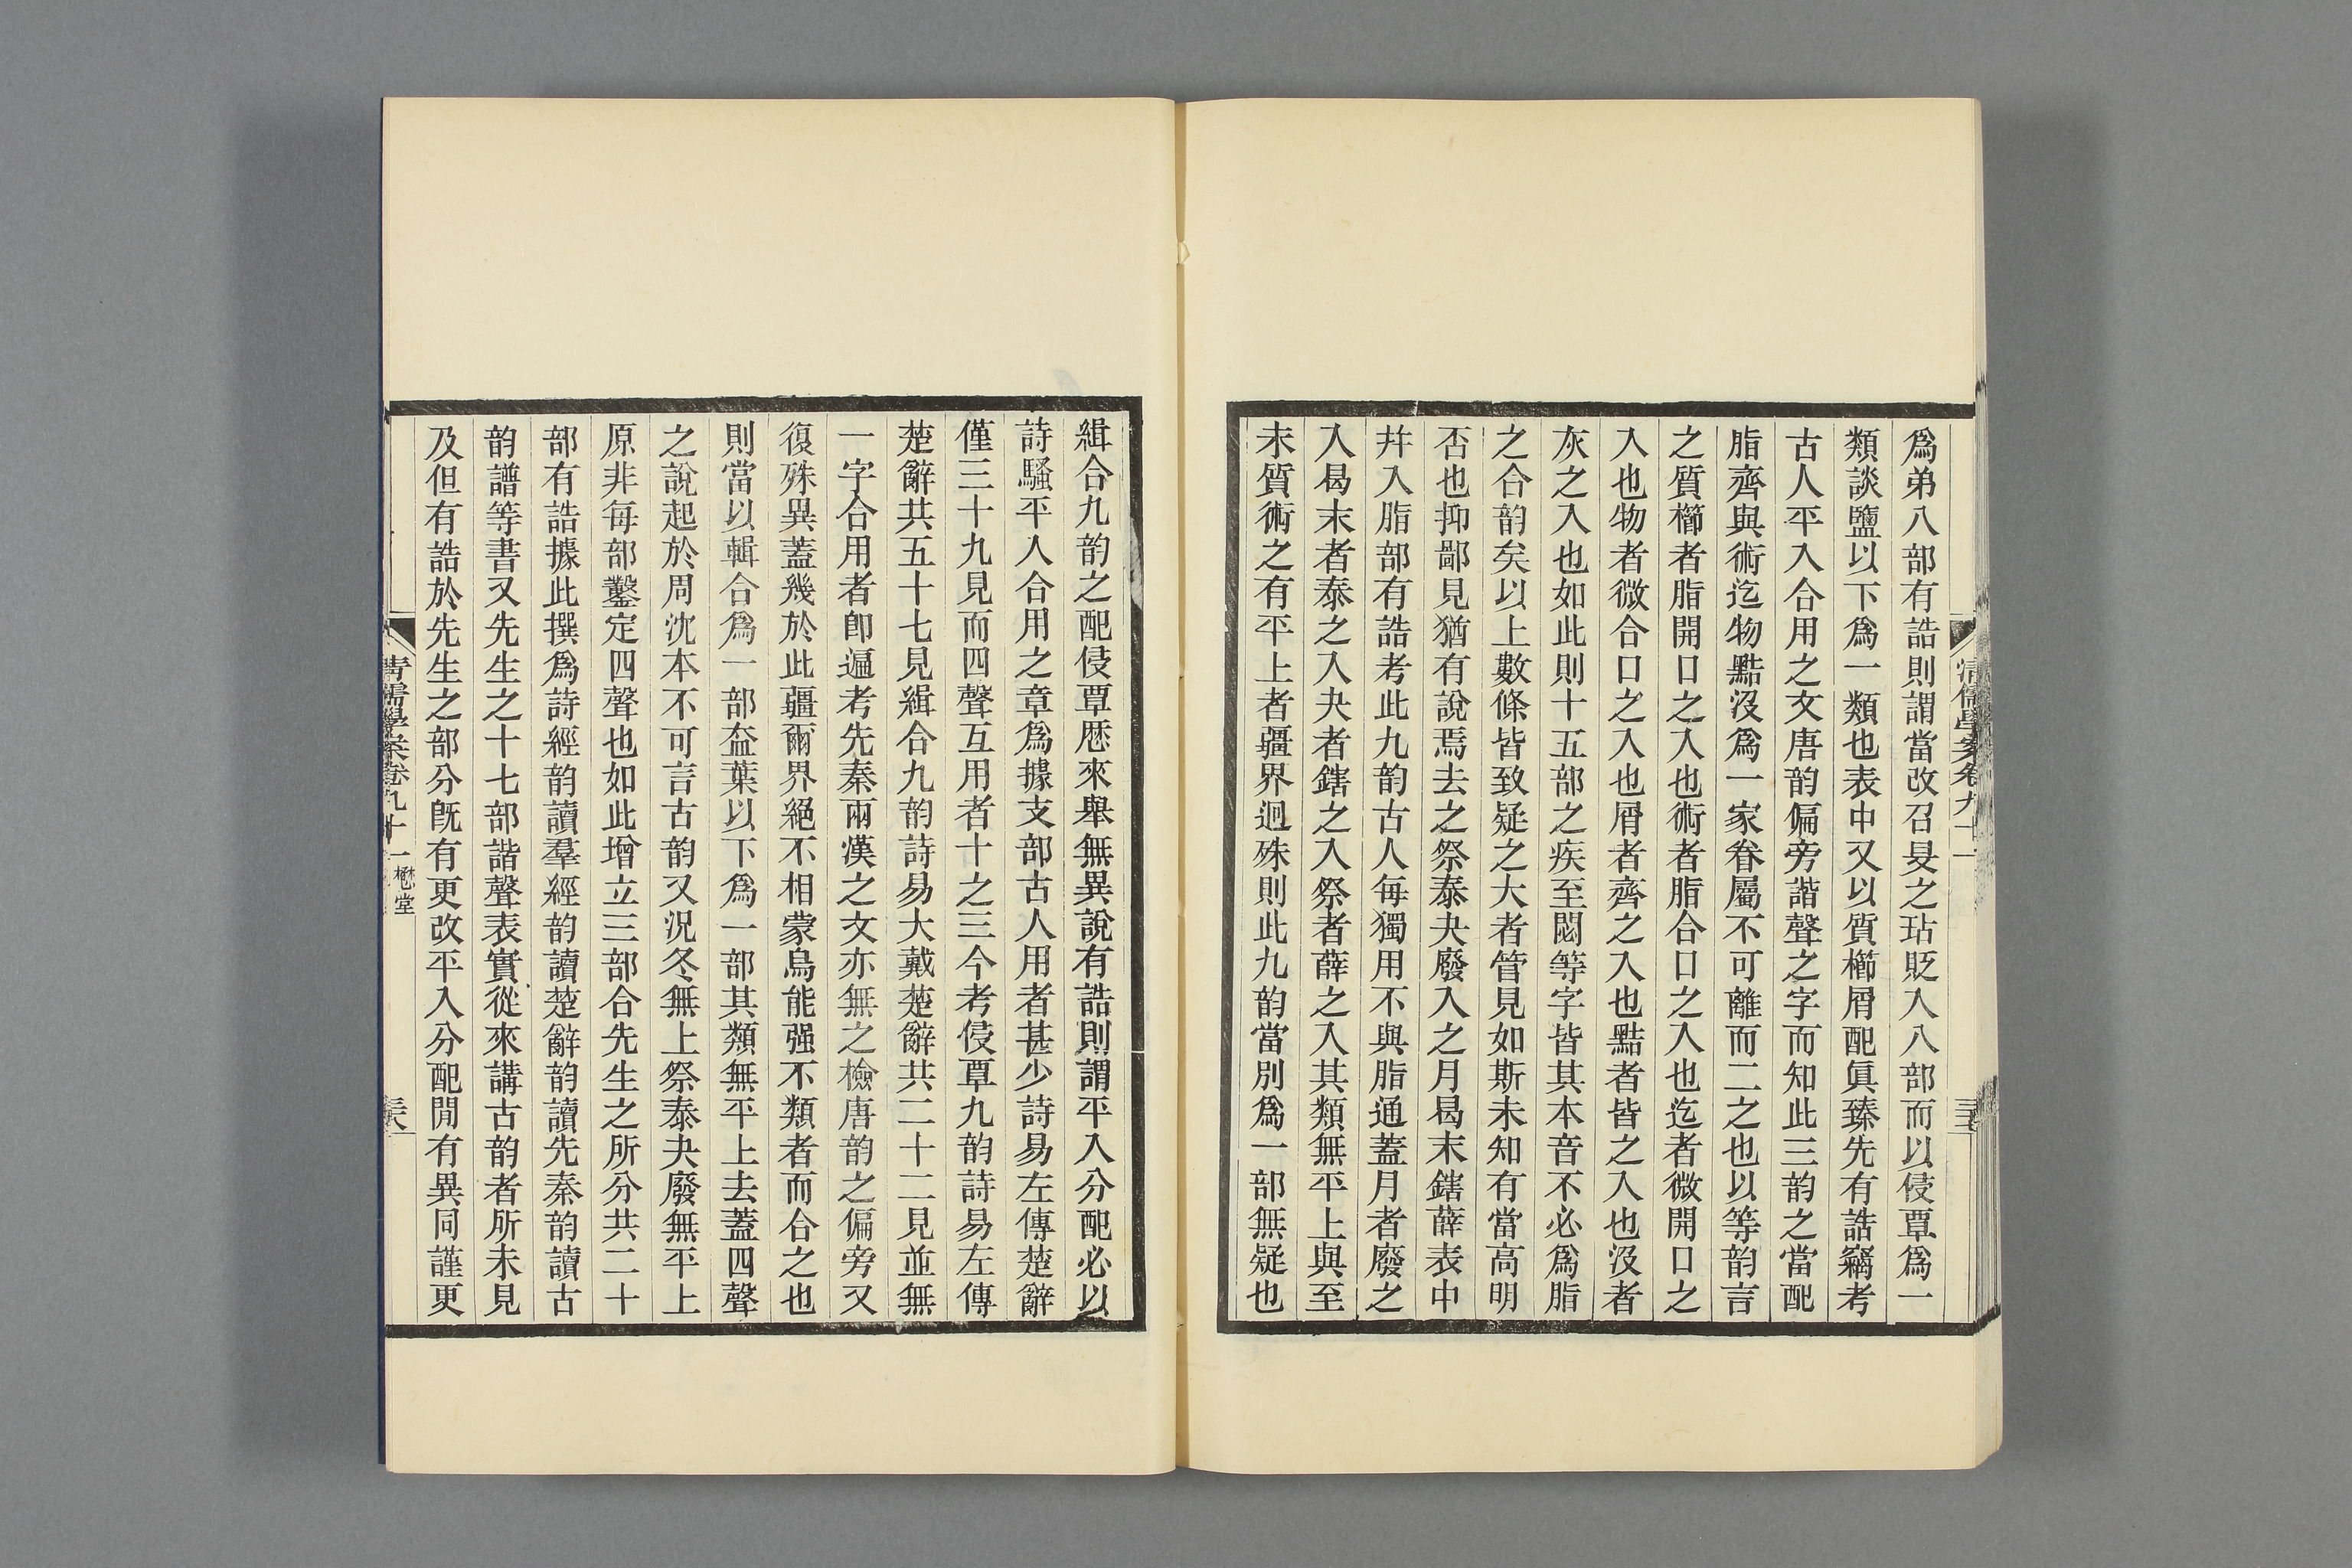 爲弟八部有誥則謂當改召旻之玷貶入八部而以侵覃爲一
類談鹽以下爲一類也表中又以質櫛屑配眞臻先有誥竊考
古人平入合用之文唐韵偏旁諧聲之字而知此三韵之當配
脂齊與術迄物黠沒爲一家眷屬不可離而二之也以等韵言
之質櫛者脂開口之入也術者脂合口之入也迄者微開口之
入也物者微合口之入也屑者齊之入也黠者皆之入也沒者
灰之入也如此則十五部之疾至閟等字皆其本音不必爲脂
之合韵矣以上數條皆致疑之大者管見如斯未知有當高明
否也抑鄙見猶有說焉去之祭泰夬廢入之月曷末鎋薛表中
幷入脂部有誥考此九韵古人每獨用不與脂通蓋月者廢之
入曷末者泰之入夬者鎋之入祭者薛之入其類無平上與至
未質術之有平上者疆界迥殊則此九韵當別爲一部無疑也
清儒學案卷九十一
緝合九韵之配侵覃歷來舉無異說有誥則謂平入分配必以
詩騷平入合用之章爲據支部古人用者甚少詩易左傳楚辭
僅三十九見而四聲互用者十之三今考侵覃九韵詩易左傳
楚辭共五十七見緝合九韵詩易大戴楚辭共二十二見並無
一字合用者卽遍考先秦兩漢之文亦無之檢唐韵之偏旁又
復殊異蓋幾於此疆爾界絕不相蒙烏能强不類者而合之也
則當以輯合爲一部盍葉以下爲一部其類無平上去蓋四聲
之說起於周沈本不可言古韵又況冬無上祭泰夬廢無平上
原非每部鑿定四聲也如此增立三部合先生之所分共二十
部有誥據此撰爲詩經韵讀羣經韵讀楚辭韵讀先秦韵讀古
韵譜等書又先生之十七部諧聲表實從來講古韵者所未見
及但有誥於先生之部分旣有更改平入分配閒有異同謹更
清儒學案卷九十一